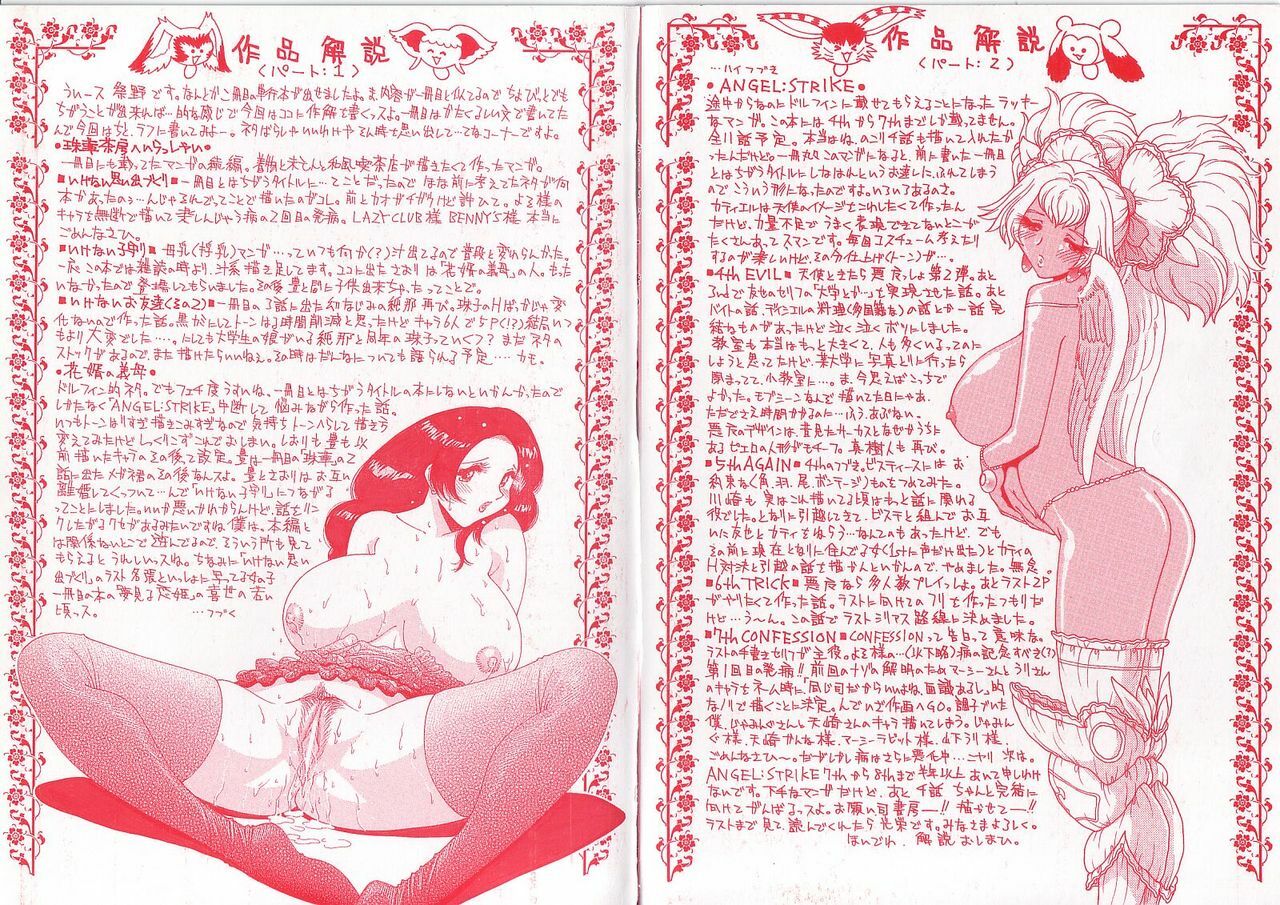 作品解説
(パート:1)
うぃース 祭野です。なんとか二冊目の単行本が出せましたよ。ま、内容が一冊目と似てるのでちょびっとでも
ちがうことが出来れば…的な感じで今回はココに作解で書くっスよ。一冊目はかたくるしい文で書いてた
んで今回は
ラフに書いてみよー。ネタばらしゃいいわけや
時も思い出して…てなコーナーですよ。
•珠華茶房へいらっしゃい•
一冊目にも載ってたマンガの続編。着物と
和風喫茶店が描きたくて作ったマンガ。
■いけない思い出づくり■一冊目とはちがうタイトルに…てことだったので
前に考えてたネタが何
本かあったの
…んじゃ
ってことで描いたのがコレ。前とカオがチガうけど許ひて。よろ様の
キャラを無断で描いて
病の2回目の発病。LAZY CLUB様 BENNY'S様 本当に
ごめんなさひ。
母乳
マンガ…っていっても何か(?)汁出てるので普段と変わらんかった。
この本では雑誌の時より、汁系描き足してます。ココに出たさおりは「花婿の義母」の人。もった
いなかったので登場してもらいました。その後 豊と間に子供出来ちゃったってことで。
■いけないお友達(その2)■一冊目の3話に出た幼なじみの紙那 再び。珠子のHばっかじゃ変
化ないので作った話。黒
トーンはる時間削減と思ったけどキャラ6人で5P(!?)結局いつ
もより大変でした…。にしても大学生の娘がいる紙那と同年の珠子っていくつ? まだネタへ
ストックがあるので、また描けたらいいねぇ。その時はだんなについても語られる予定……かも。
•花婿の義母•
ドルフィン的ネタ。でもフェチ度うすいね。一冊目とはちがうタイトルの本にしないといかんかったので
しかたなくANGEL:STRIKE中断して悩みながら作った話。
いつもトーンはりすぎ描きこみすぎなので気持ちトーンへらして描き方
変えてみたけどしっくりこずこんでおしまい。しおりも豊も以
前描いたキャラその後って設定。豊は一冊目の「珠華」の2
話に出たメガネ君のその後なんスよ。豊とさおりはお互い
離婚してくっついて…んで「いけない子守り」につながる
ってことにしました。いいか悪いかわからんけど、話をリン
クしたがるクセがあるみたいですね僕は。本編と
は関係ないとこで遊んでるので、そういう所も見て
もらえるとうれしいっスね。ちなみに「いけない思い
出づくり」のラスト名張といっしょに写ってる女の子
一冊目の本の「夢見る恋姫」の喜世の若い
頃っス。 …つづく
作品解説
(パート:2)
…ハイつづき
•ANGEL:STRIKE•
途中からなのにドルフィンに載せてもらえることになったラッキー
なマンガ。この本には4thから7thまでしか載ってません。
全11話予定。本当はね、のこり4話も描いて入れたか
ったんだけどの一冊丸ごとこのマンガになると、前に書いた一冊目
とはちがうタイトルにしなけれという
お達し、ふんでしまう
のでこういう形になったですよ。いろいろあるのさ。
カティエルは天使のイメージをこわしたくて作ったん
だけど、力量不足でうまく表現できてないとこが
たくさんあってスマンです。毎回コスチューム考えたり
するのが楽しいけど、その分仕上げ(トーン)が…。
■4th EVIL■天使ときたら悪魔っしょ第2弾。あと
2ndで友也のセリフの「大学とか」を実現させた話。あと
バイトの話、ディニエルの料理(多国籍な)の話とか一話完
結ものがあったけど泣く泣くボツにしました。
教室も本当はもっと大きくて、人も多くいるってのに
しようと思ってたけど、某大学に写真とりに行ったら
閉まってて、小教室に…。ま、今思えばこっちで
よかった。モブシーンなんて描いてた日にゃあ、
ただでさえ時間かかるのに…ふう、あぶない。
悪魔のデザインは、昔見たサーカスとなぜかうちに
あるピエロの人形がモチーフ。真樹人も再び。
■5th AGAIN■4thのつづき。ビスティースには お
約束な(角、羽、尾、ボンテージ)ものをつけてみた。
川崎も実はこれ描いてる頃はもっと話に関わる
役でした。となりに引越してきて、ビスチと組んでお互
いに友也とカティをねらう…なんてのもあったけど、でも
その前に現在となりに住んでる女(1stに声だけ出た)とカティの
H対決と引越の話を描かんといかんので、やめました。無念。
■6th TRICK■悪魔なら多人数プレイっしょ。あとラスト2P
がやりたくて作った話。ラストに向けてのフリで作ったつもりだ
けど…う〜ん。この話でラストシリアス路線に決めました。
■7th CONFESSION■CONFESSIONって告白って意味な。
ラストの手書きセリフが主役。よろ様の…(以下略)病の記念すべき(?)
第1回目の発病!! 前回のナゾの解明のためマーシーさんとうりさん
のキャラをネーム時に「同じ司だからいいよね、面識あるし」的
なノリで描くことに決定。んでいざ作画へGO。調子づいた
僕、じゃみんぐさんと天崎さんのキャラ描いてしまう。じゃみん
ぐ様、天崎かんな様、マーシーラビット様、山下うり様、
ごめんなさひ〜。だがしかし病はさらに悪化中…ニヤリ 次は。
ANGEL:STRIKE 7thから8thまで半年以上あいて申しわけ
ないです。下手なマンガだけど、あと4話 ちゃんと完結に
向けてがんばるっスよ。お願い司書房ー!! 描かせてー!!
ラストまで見て、読んでくれたら光栄です。みなさまよろしく。
ほいでわ、解説 おしまひ。